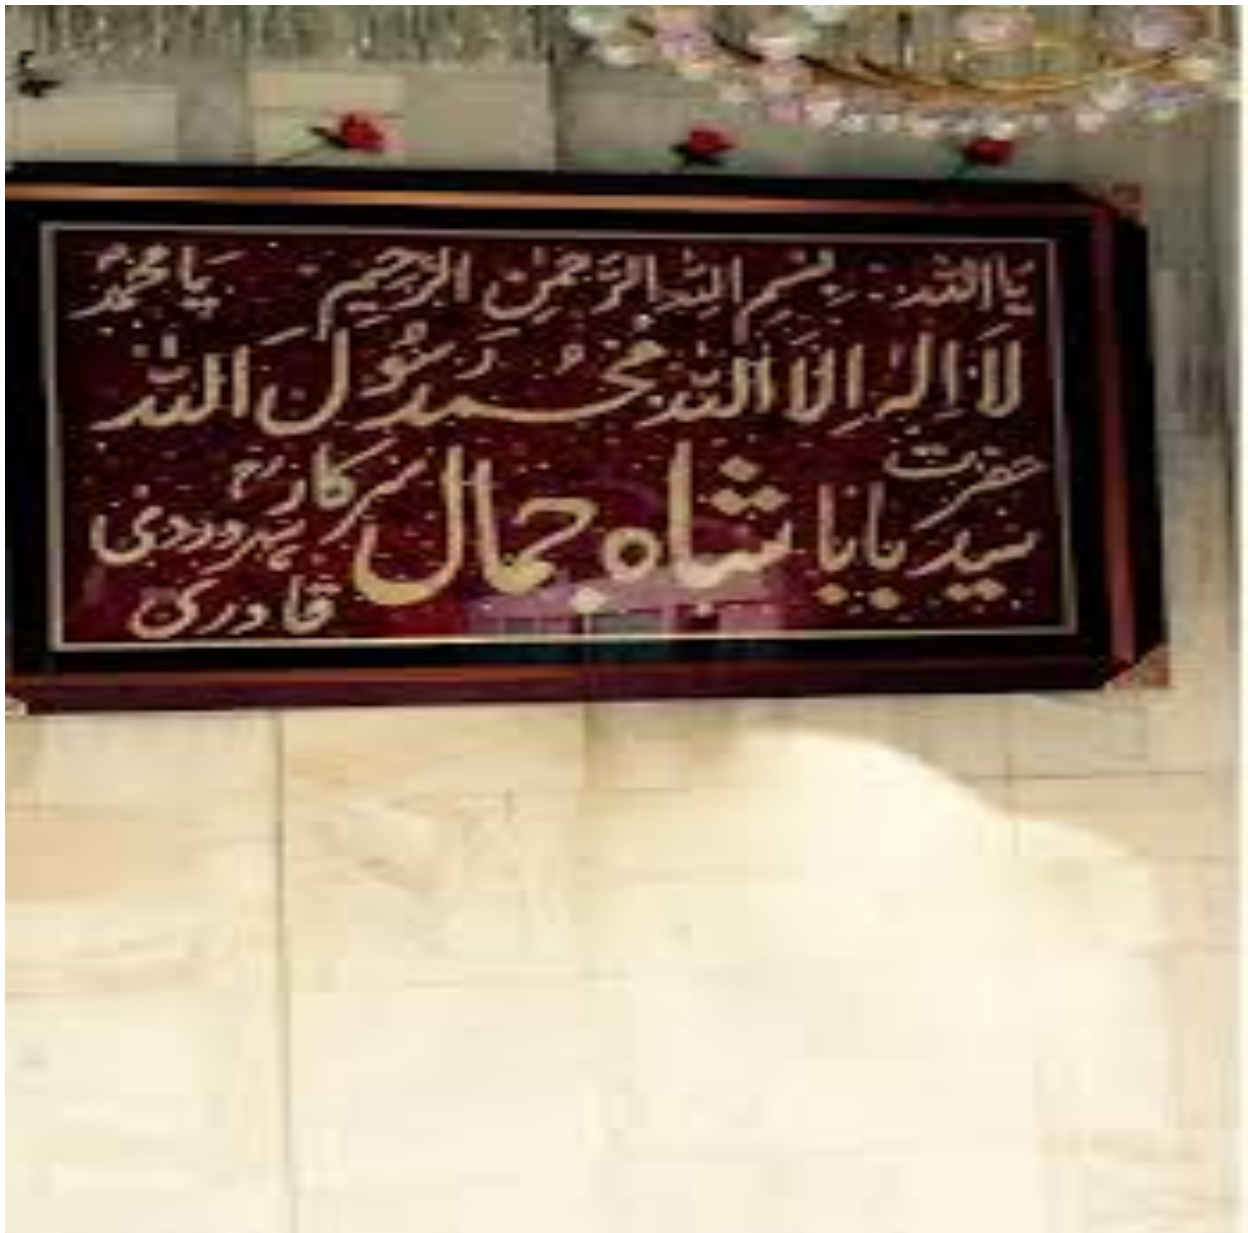 یا اللہ بِسْمِ اللہِ الرَّحْمٰنِ الرَّحِیْمِ یا محمدؐ
لَا اِلٰہَ اِلَّا اللہ مُحَمَّد رَسُوْلَ اللہ
حضرت سید بابا شاہ جمال سرکارؒ سہروردی
قادری